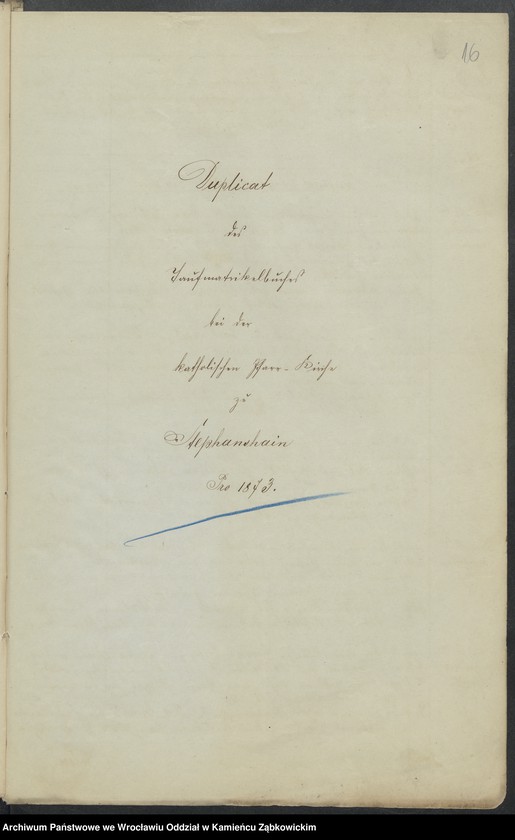 16
Duplicat
des
Taufmatrikelbuches
bei der
katholischen Pfarr-Kirche
zu
Stephanshain
Pro 1873.
Archiwum Państwowe we Wrocławiu Oddział w Kamieńcu Ząbkowickim